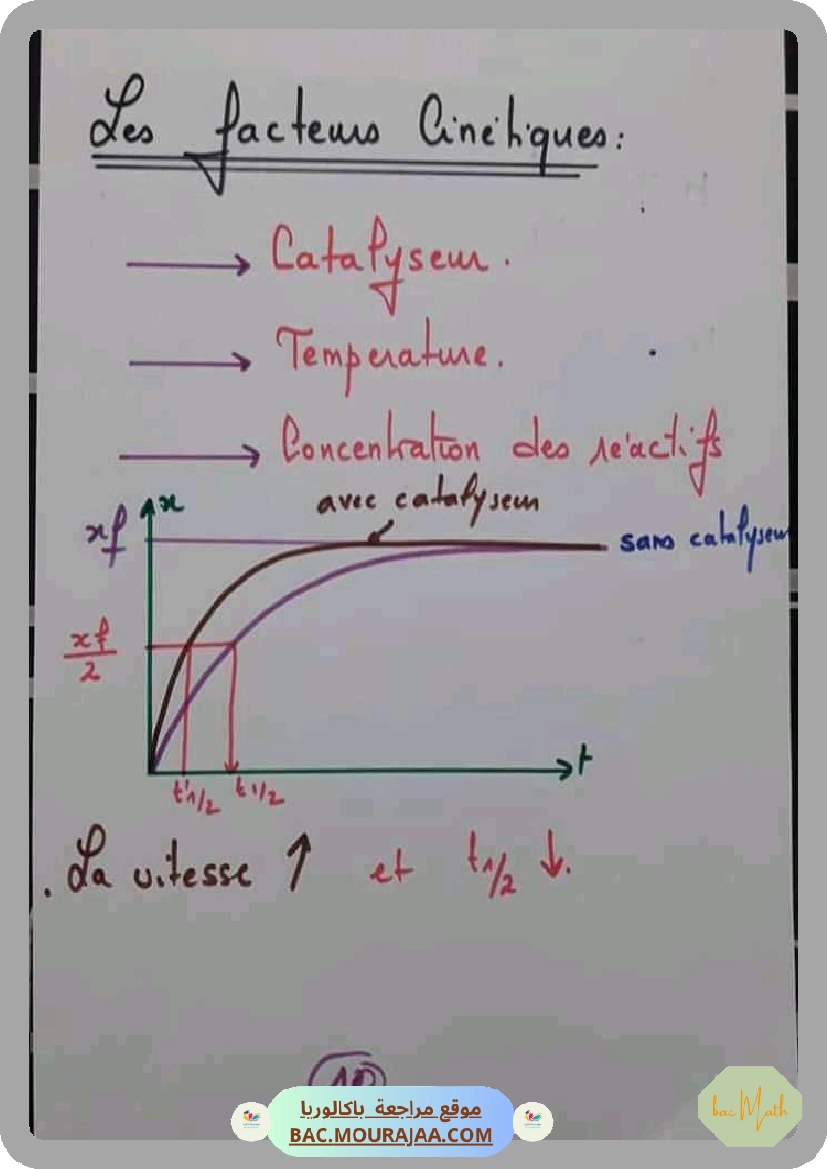 Les facteurs Cinétiques:
→ Catalyseur.
→ Température.
→ Concentration des réactifs
x
avec catalyseur
xf
sans catalyseur
xf/2
t
t'1/2 t1/2
. La vitesse ↑ et t1/2 ↓.
10
موقع مراجعة باكالوريا
BAC.MOURAJAA.COM
bac Math